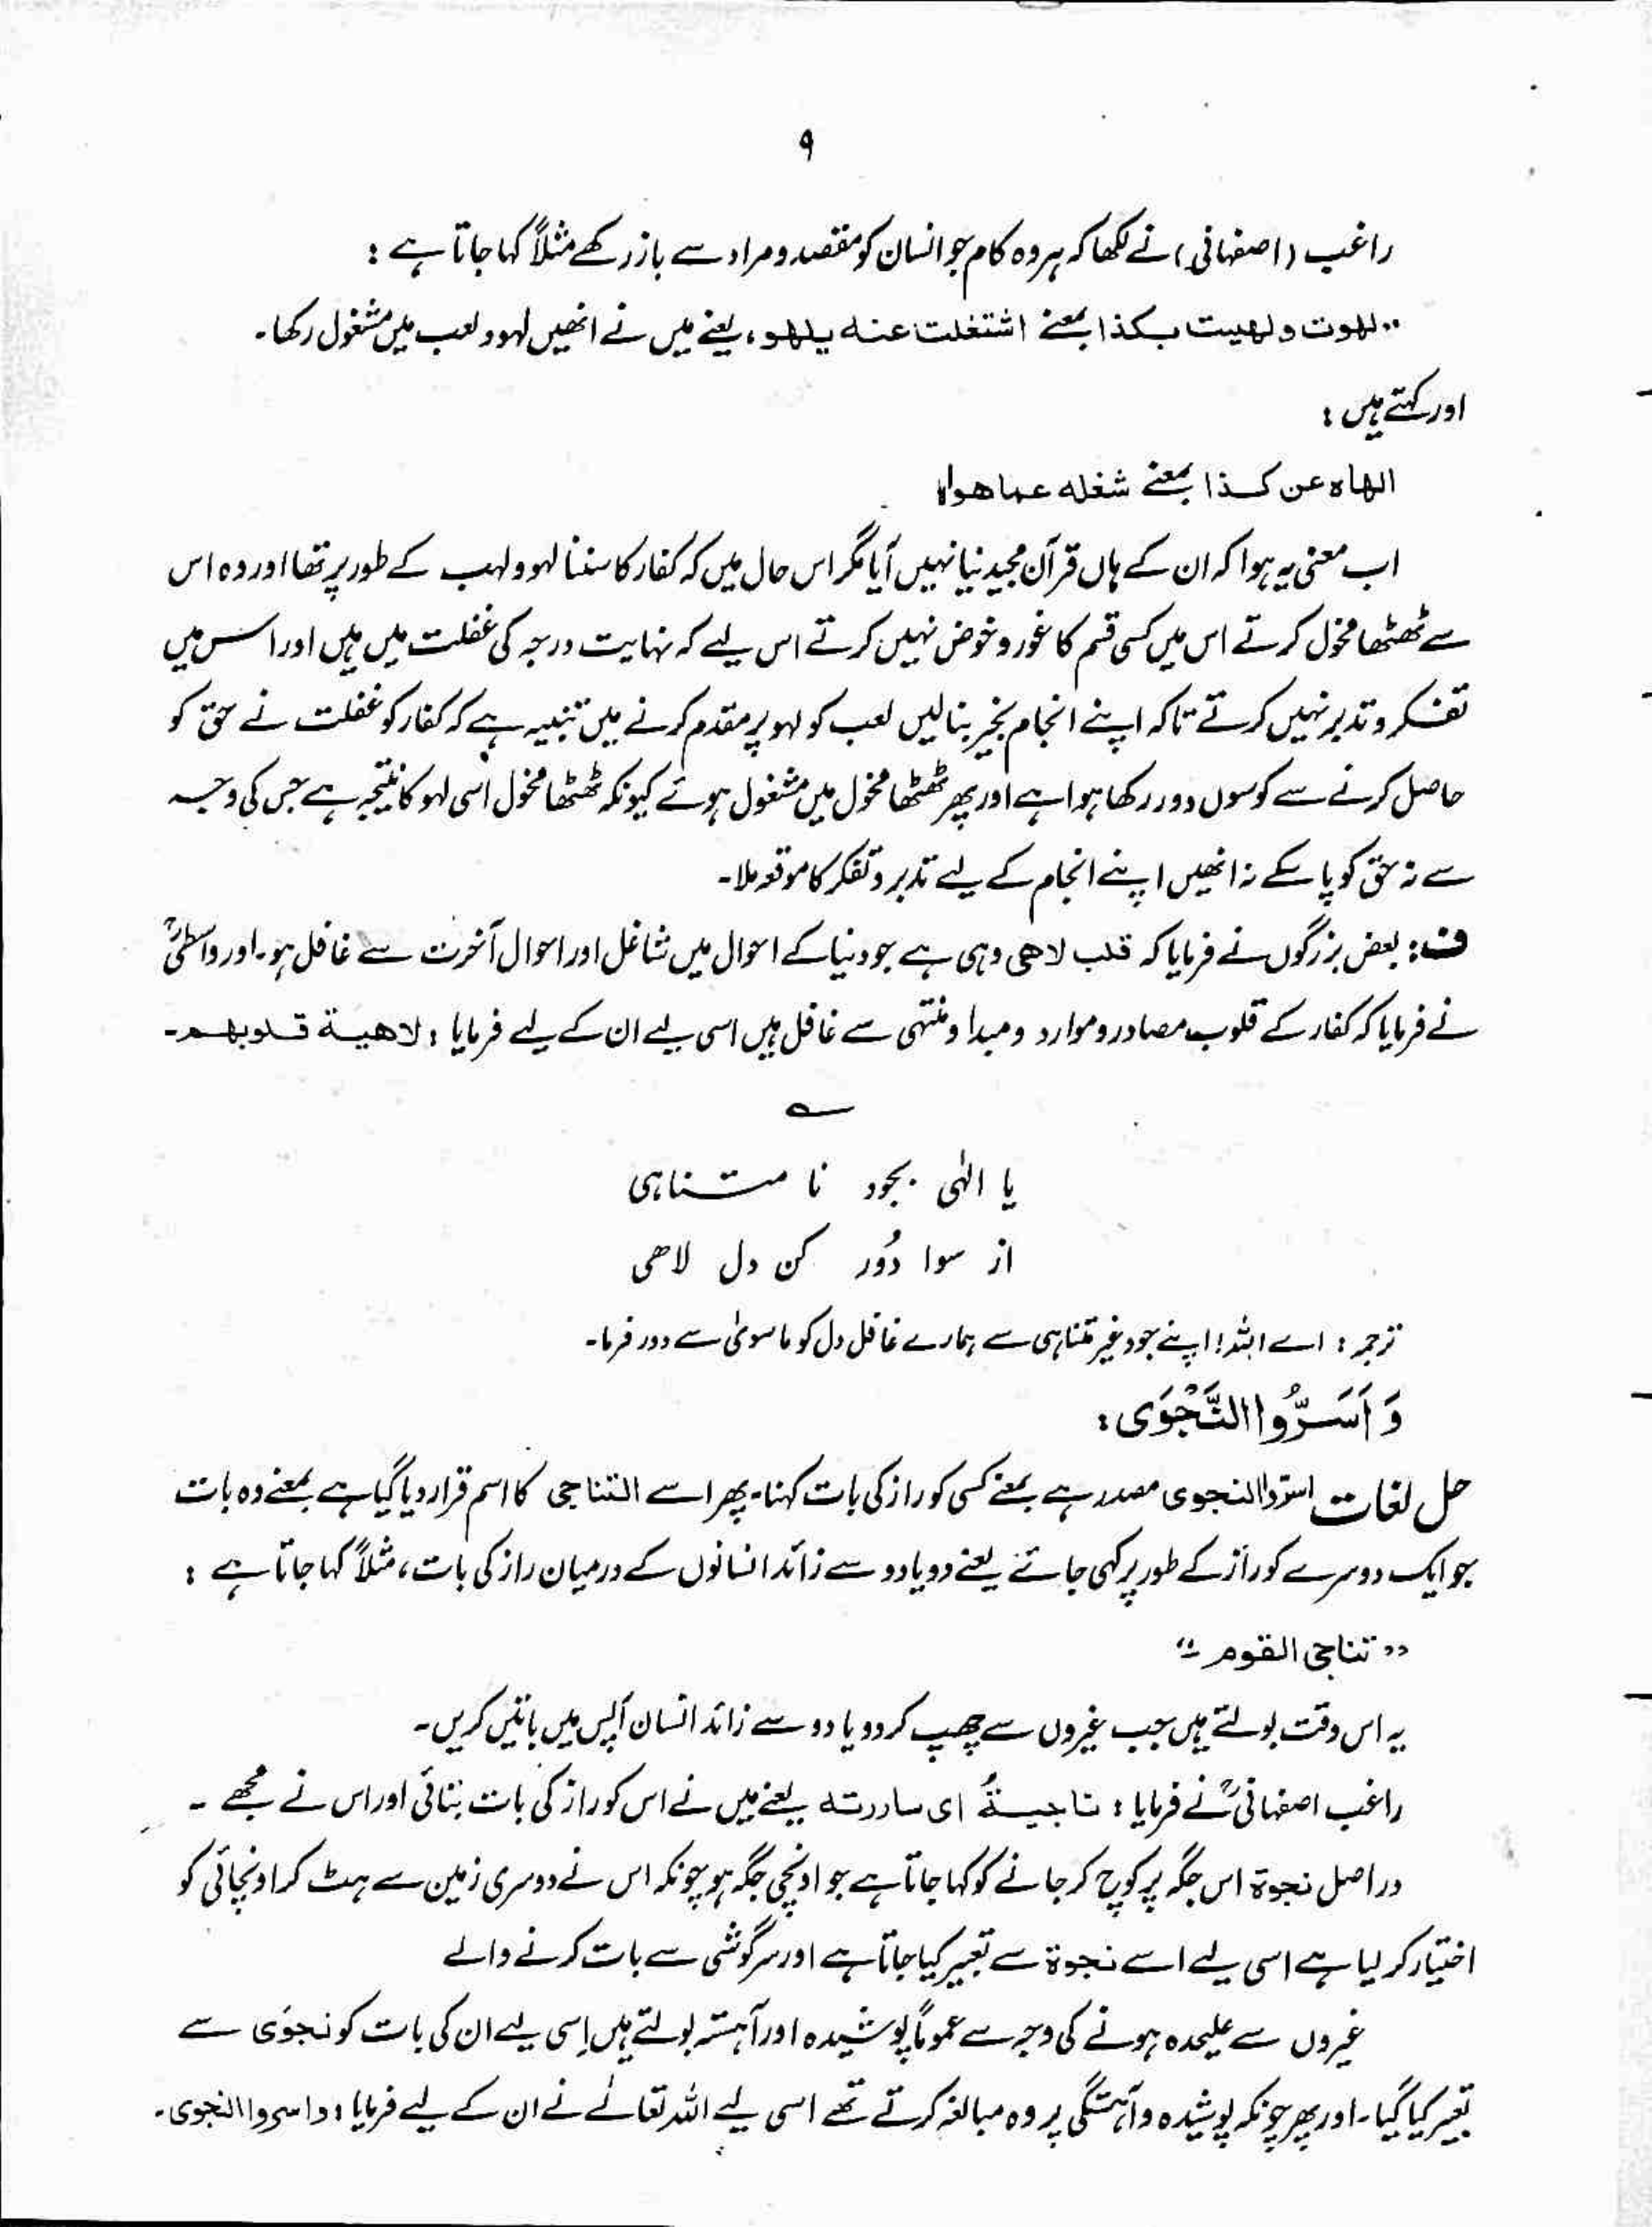 ۹
راغب (اصفہانی) نے لکھا کہ ہر وہ کام جو انسان کو مقصد و مراد سے باز رکھے مثلاً کہا جاتا ہے :
"لهوت ولهيت بكذا بمعنے اشتغلت عنه يلهو، یعنے میں نے انھیں لہو و لعب میں مشغول رکھا۔
اور کہتے ہیں :
الهاه عن كذا بمعنے شغله عما هواه
اب معنی یہ ہوا کہ ان کے ہاں قرآن مجید نیا نہیں آیا مگر اس حال میں کہ کفار کا سننا لہو ولہب کے طور پر تھا اور وہ اس
سے ٹھٹھا مخول کرتے اس میں کسی قسم کا غور و خوض نہیں کرتے اس لیے کہ نہایت درجہ کی غفلت میں ہیں اور اس میں
تفکر و تدبر نہیں کرتے تاکہ اپنے انجام بخیر بنالیں لعب کو لہو پر مقدم کرنے میں تنبیہ ہے کہ کفار کو غفلت نے حق کو
حاصل کرنے سے کوسوں دور رکھا ہوا ہے اور پھر ٹھٹھا مخول میں مشغول ہوئے کیونکہ ٹھٹھا مخول اسی لہو کا نتیجہ ہے جس کی وجہ
سے نہ حق کو پا سکے نہ انھیں اپنے انجام کے لیے تدبر و تفکر کا موقعہ ملا۔
ف : بعض بزرگوں نے فرمایا کہ قلب لاھی وہی ہے جو دنیا کے احوال میں شاغل اور احوال آخرت سے غافل ہو۔ اور واسطیؒ
نے فرمایا کہ کفار کے قلوب مصادر و موارد و مبدا و منتہی سے غافل ہیں اسی لیے ان کے لیے فرمایا : لاهية قلوبهم۔
؎
یا الٰہی بجود نا متناہی
از سوا دُور کن دل لاھی
ترجمہ : اے اللہ! اپنے جود غیر متناہی سے ہمارے غافل دل کو ماسویٰ سے دور فرما۔
وَ اَسَرُّوا النَّجْوَى :
حل لغات اسرّوا النجوى مصدر ہے بمعنے کسی کو راز کی بات کہنا۔ پھر اسے التناجی کا اسم قرار دیا گیا ہے بمعنے وہ بات
جو ایک دوسرے کو راز کے طور پر کہی جائے یعنے دو یا دو سے زائد انسانوں کے درمیان راز کی بات، مثلاً کہا جاتا ہے :
"تناجی القوم"
یہ اس وقت بولتے ہیں جب غیروں سے چھپ کر دو یا دو سے زائد انسان آپس میں باتیں کریں۔
راغب اصفہانیؒ نے فرمایا : ناجیتہُ ای ساررته یعنے میں نے اس کو راز کی بات بتائی اور اس نے مجھے ۔
در اصل نجوة اس جگہ پر کوچ کر جانے کو کہا جاتا ہے جو اونچی جگہ ہو چونکہ اس نے دوسری زمین سے ہٹ کر اونچائی کو
اختیار کر لیا ہے اسی لیے اسے نجوة سے تعبیر کیا جاتا ہے اور سرگوشی سے بات کرنے والے
غیروں سے علیحدہ ہونے کی وجہ سے عموماً پوشیدہ اور آہستہ بولتے ہیں اِسی لیے ان کی بات کو نجوٰی سے
تعبیر کیا گیا۔ اور پھر چونکہ پوشیدہ و آہستگی پر وہ مبالغہ کرتے تھے اسی لیے اللہ تعالٰے نے ان کے لیے فرمایا : واسروا النجوی۔